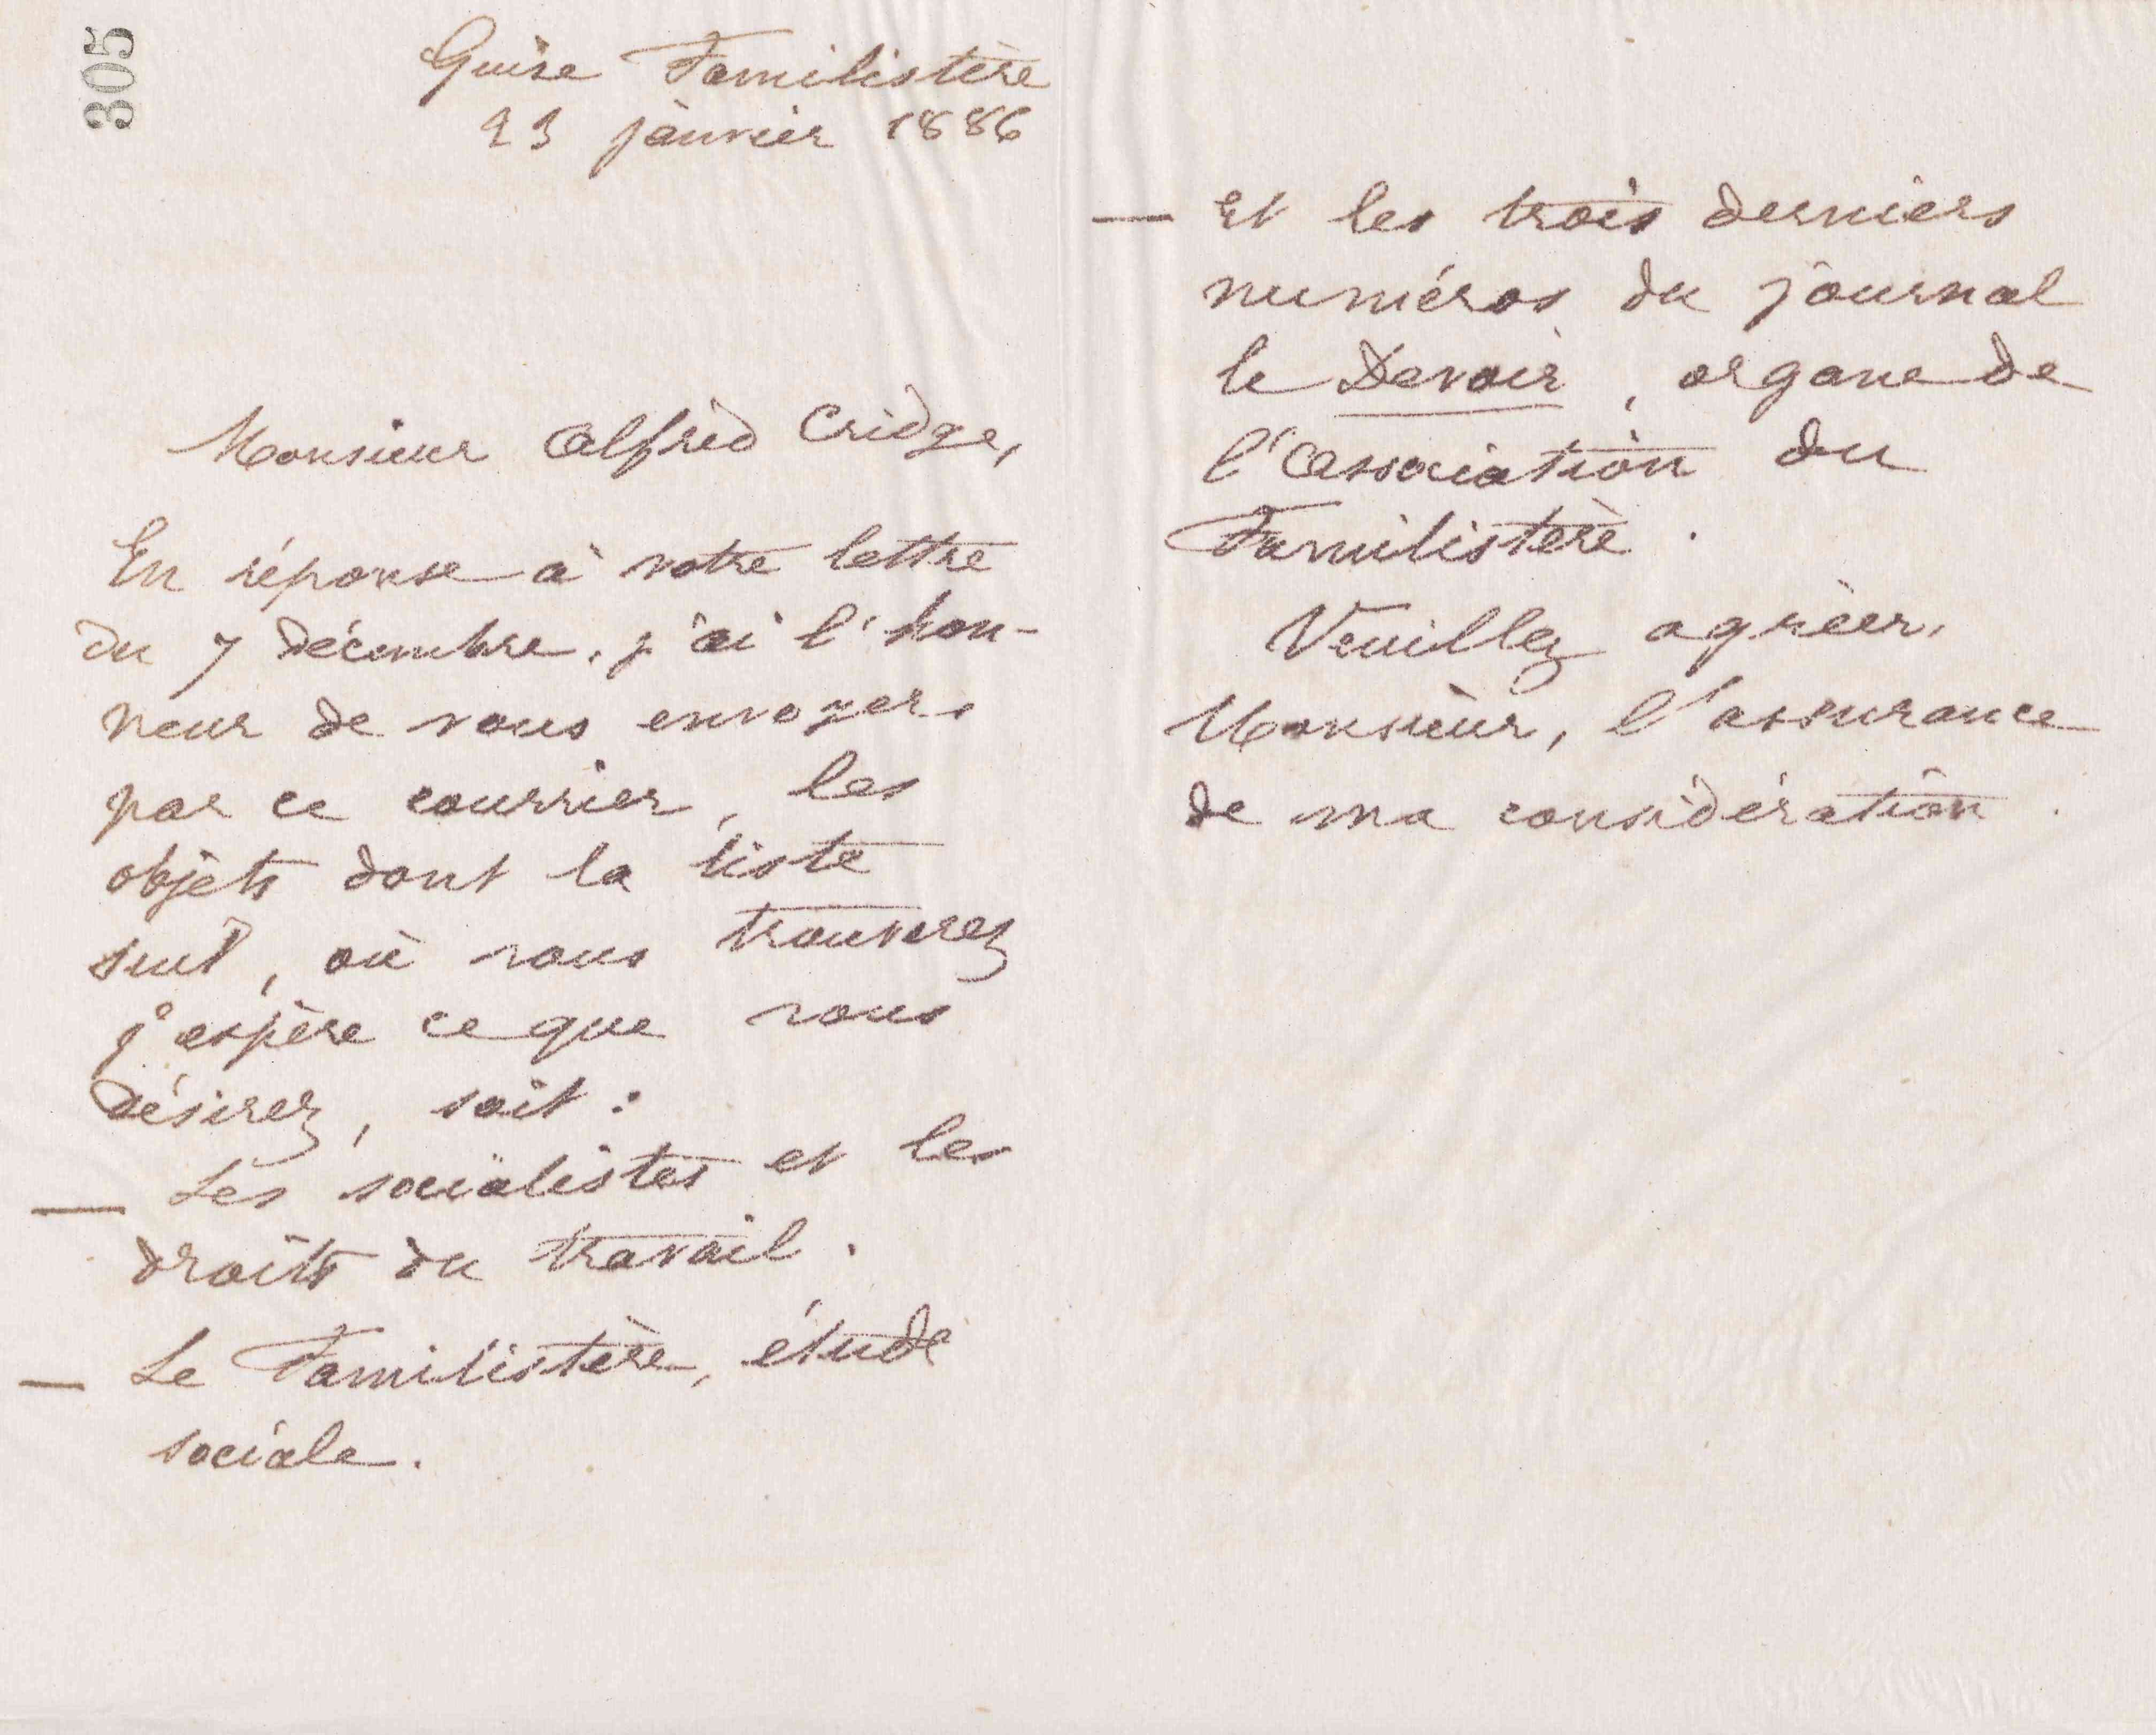 305
Guise Familistère
23 janvier 1886
Monsieur Alfred Cridge,
En réponse à votre lettre
du 7 décembre, j'ai l'hon-
neur de vous envoyer,
par ce courrier, les
objets dont la liste
suit, où vous trouverez
j'espère ce que vous
désirez, soit :
— Les socialistes et les
droits du travail.
— Le Familistère, étude
sociale.
— Et les trois derniers
numéros du journal
le Devoir, organe de
l'Association du
Familistère.
Veuillez agréer,
Monsieur, l'assurance
de ma considération.